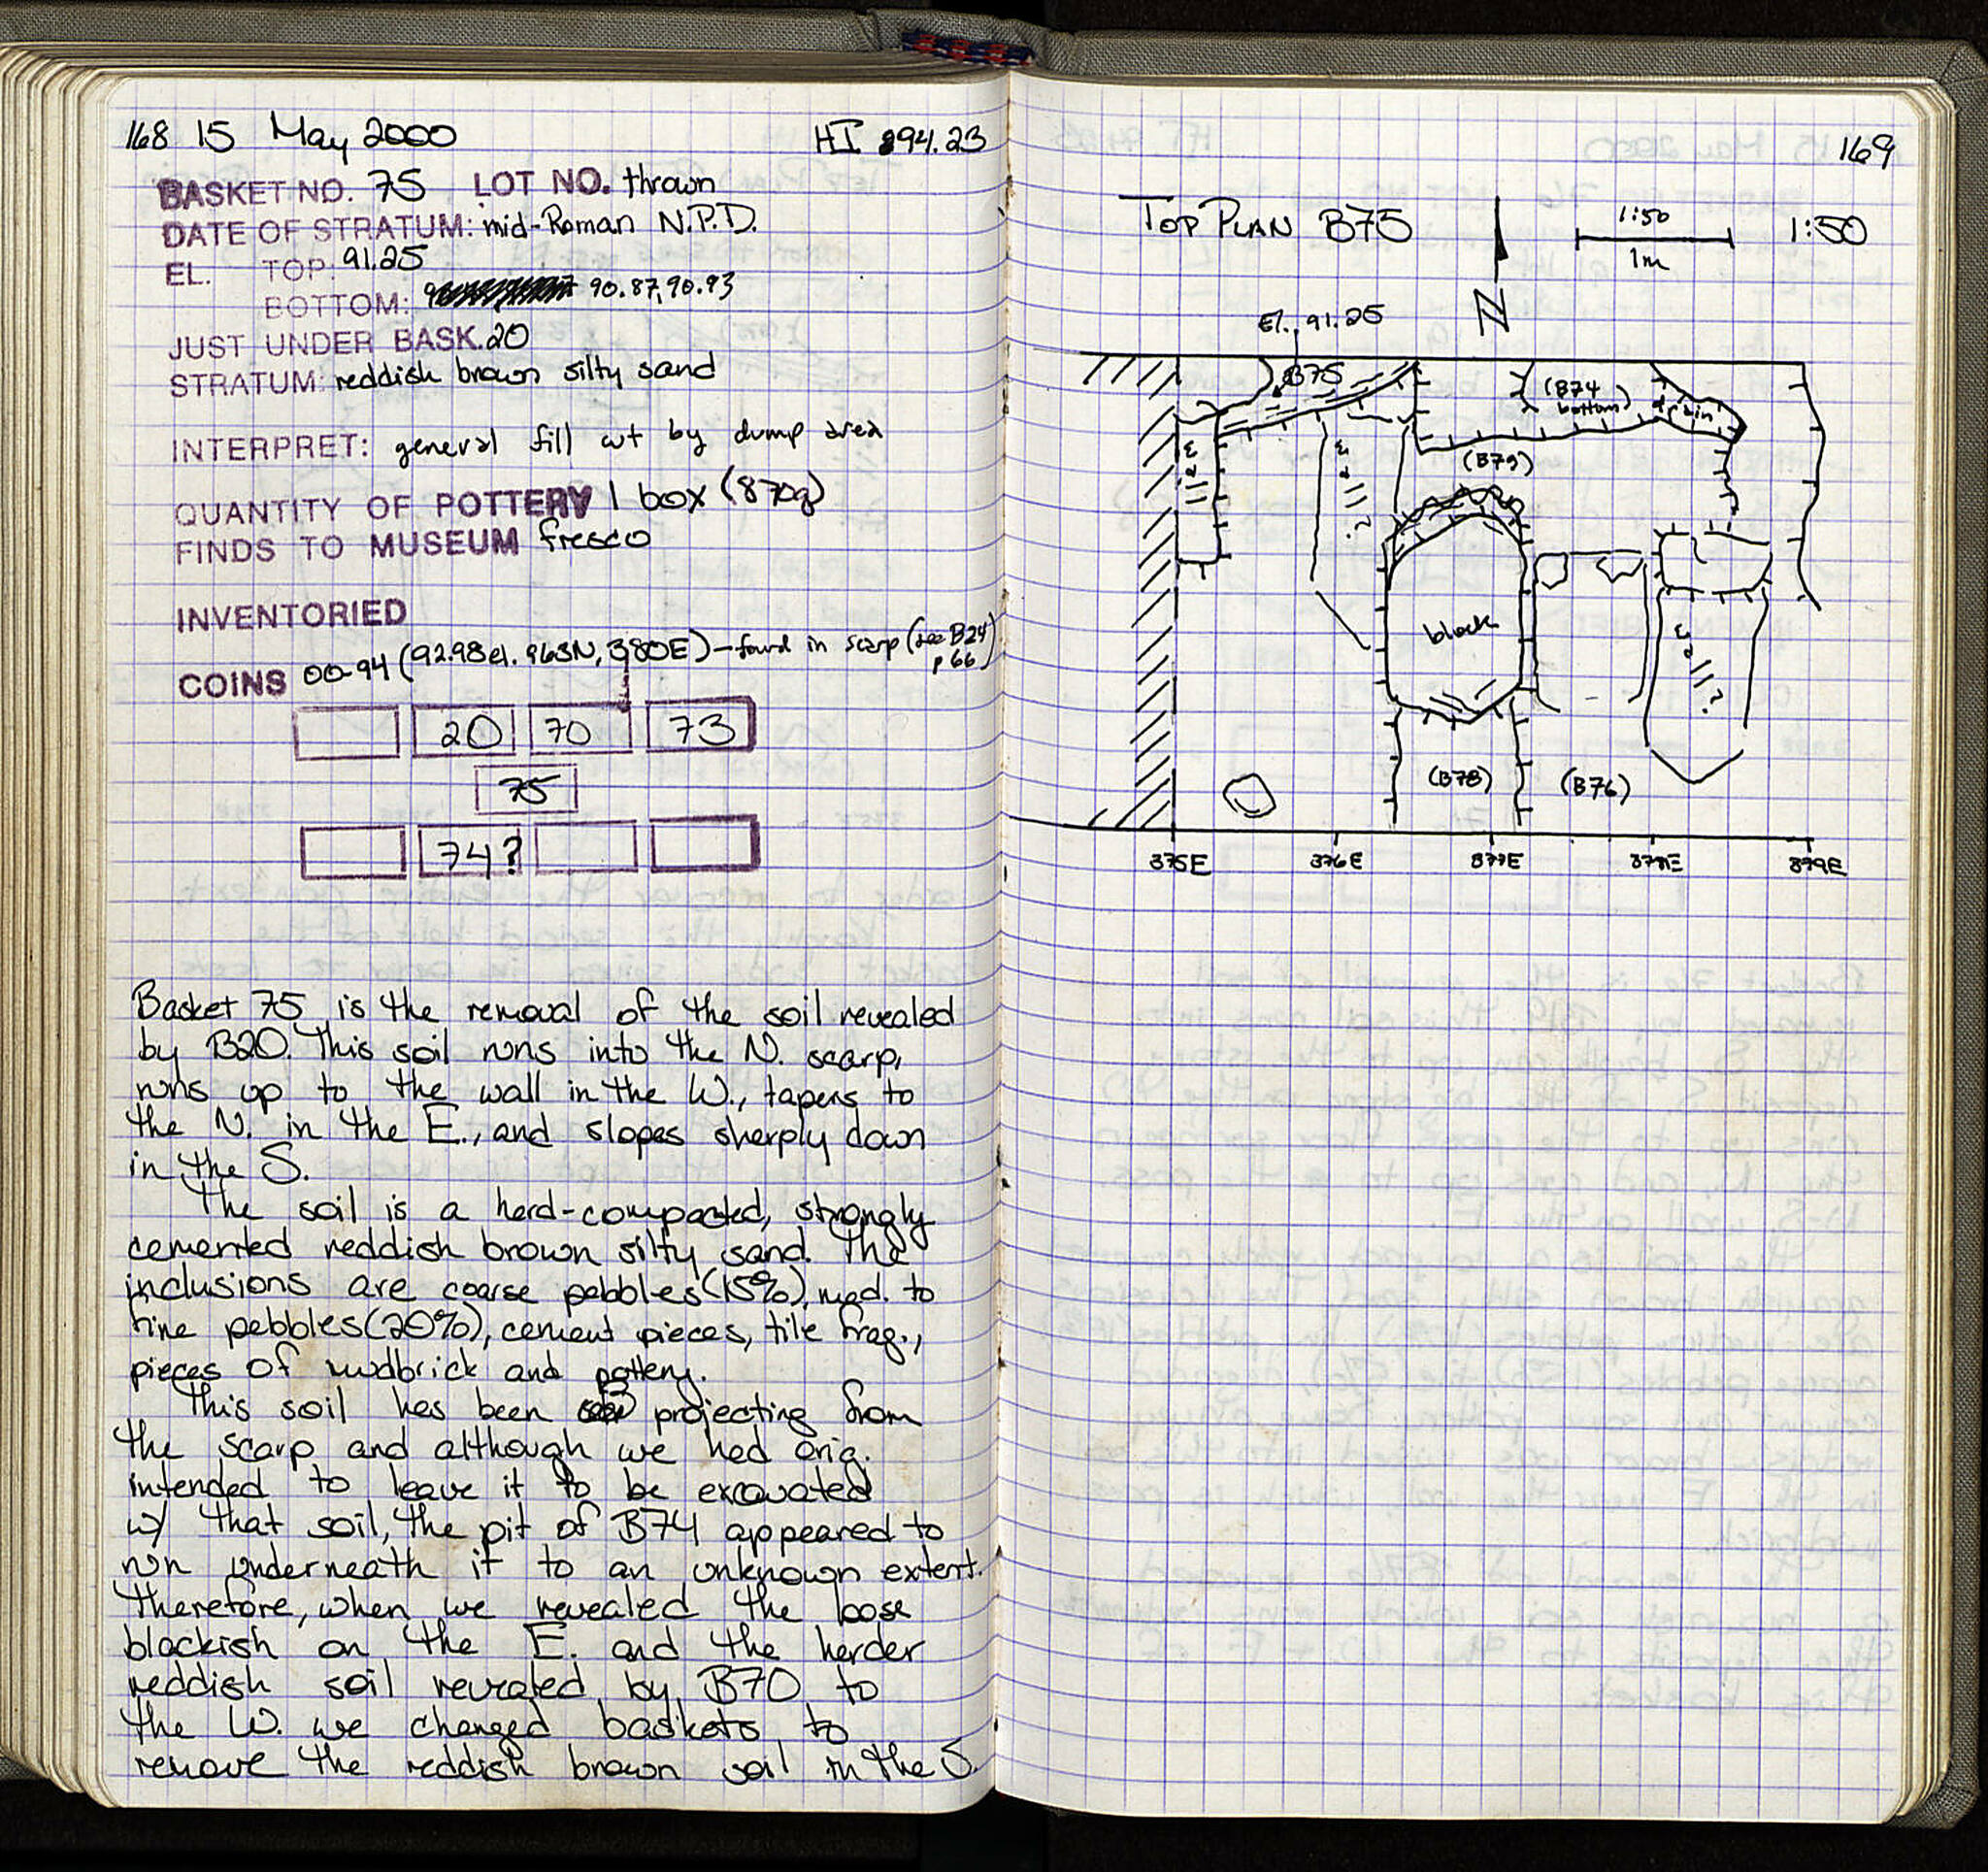 168 15 May 2000 HI 94.23
BASKET NO. 75 LOT NO. thrown
DATE OF STRATUM: mid-Roman N.P.D.
EL. TOP: 91.25
BOTTOM: 90.87, 90.93
JUST UNDER BASK. 20
STRATUM: reddish brown silty sand
INTERPRET: general fill cut by dump area
QUANTITY OF POTTERY 1 box (870g)
FINDS TO MUSEUM fresco
INVENTORIED
COINS 00-94 (92.98 el. 963N, 380E) – found in scarp (see B24
p 66)
20 70 73
75
74?
Basket 75 is the removal of the soil revealed
by B20. This soil runs into the N. scarp,
runs up to the wall in the W., tapers to
the N. in the E., and slopes sharply down
in the S.
The soil is a hard-compacted, strongly
cemented reddish brown silty sand. The
inclusions are coarse pebbles (15%), med. to
fine pebbles (20%), cement pieces, tile frag.,
pieces of mudbrick and pottery.
This soil has been projecting from
the scarp and although we had orig.
intended to leave it to be excavated
w/ that soil, the pit of B74 appeared to
run underneath it to an unknown extent.
Therefore, when we revealed the loose
blackish on the E. and the harder
reddish soil revealed by B70 to
the W. we changed baskets to
remove the reddish brown soil in the S.
169
TOP PLAN B75 1:50 1:50
1m
N
El. 91.25
B75
(B74
bottom)
drain
wall
wall?
(B79)
block
wall?
(B78)
(B76)
375E 376E 377E 378E 379E